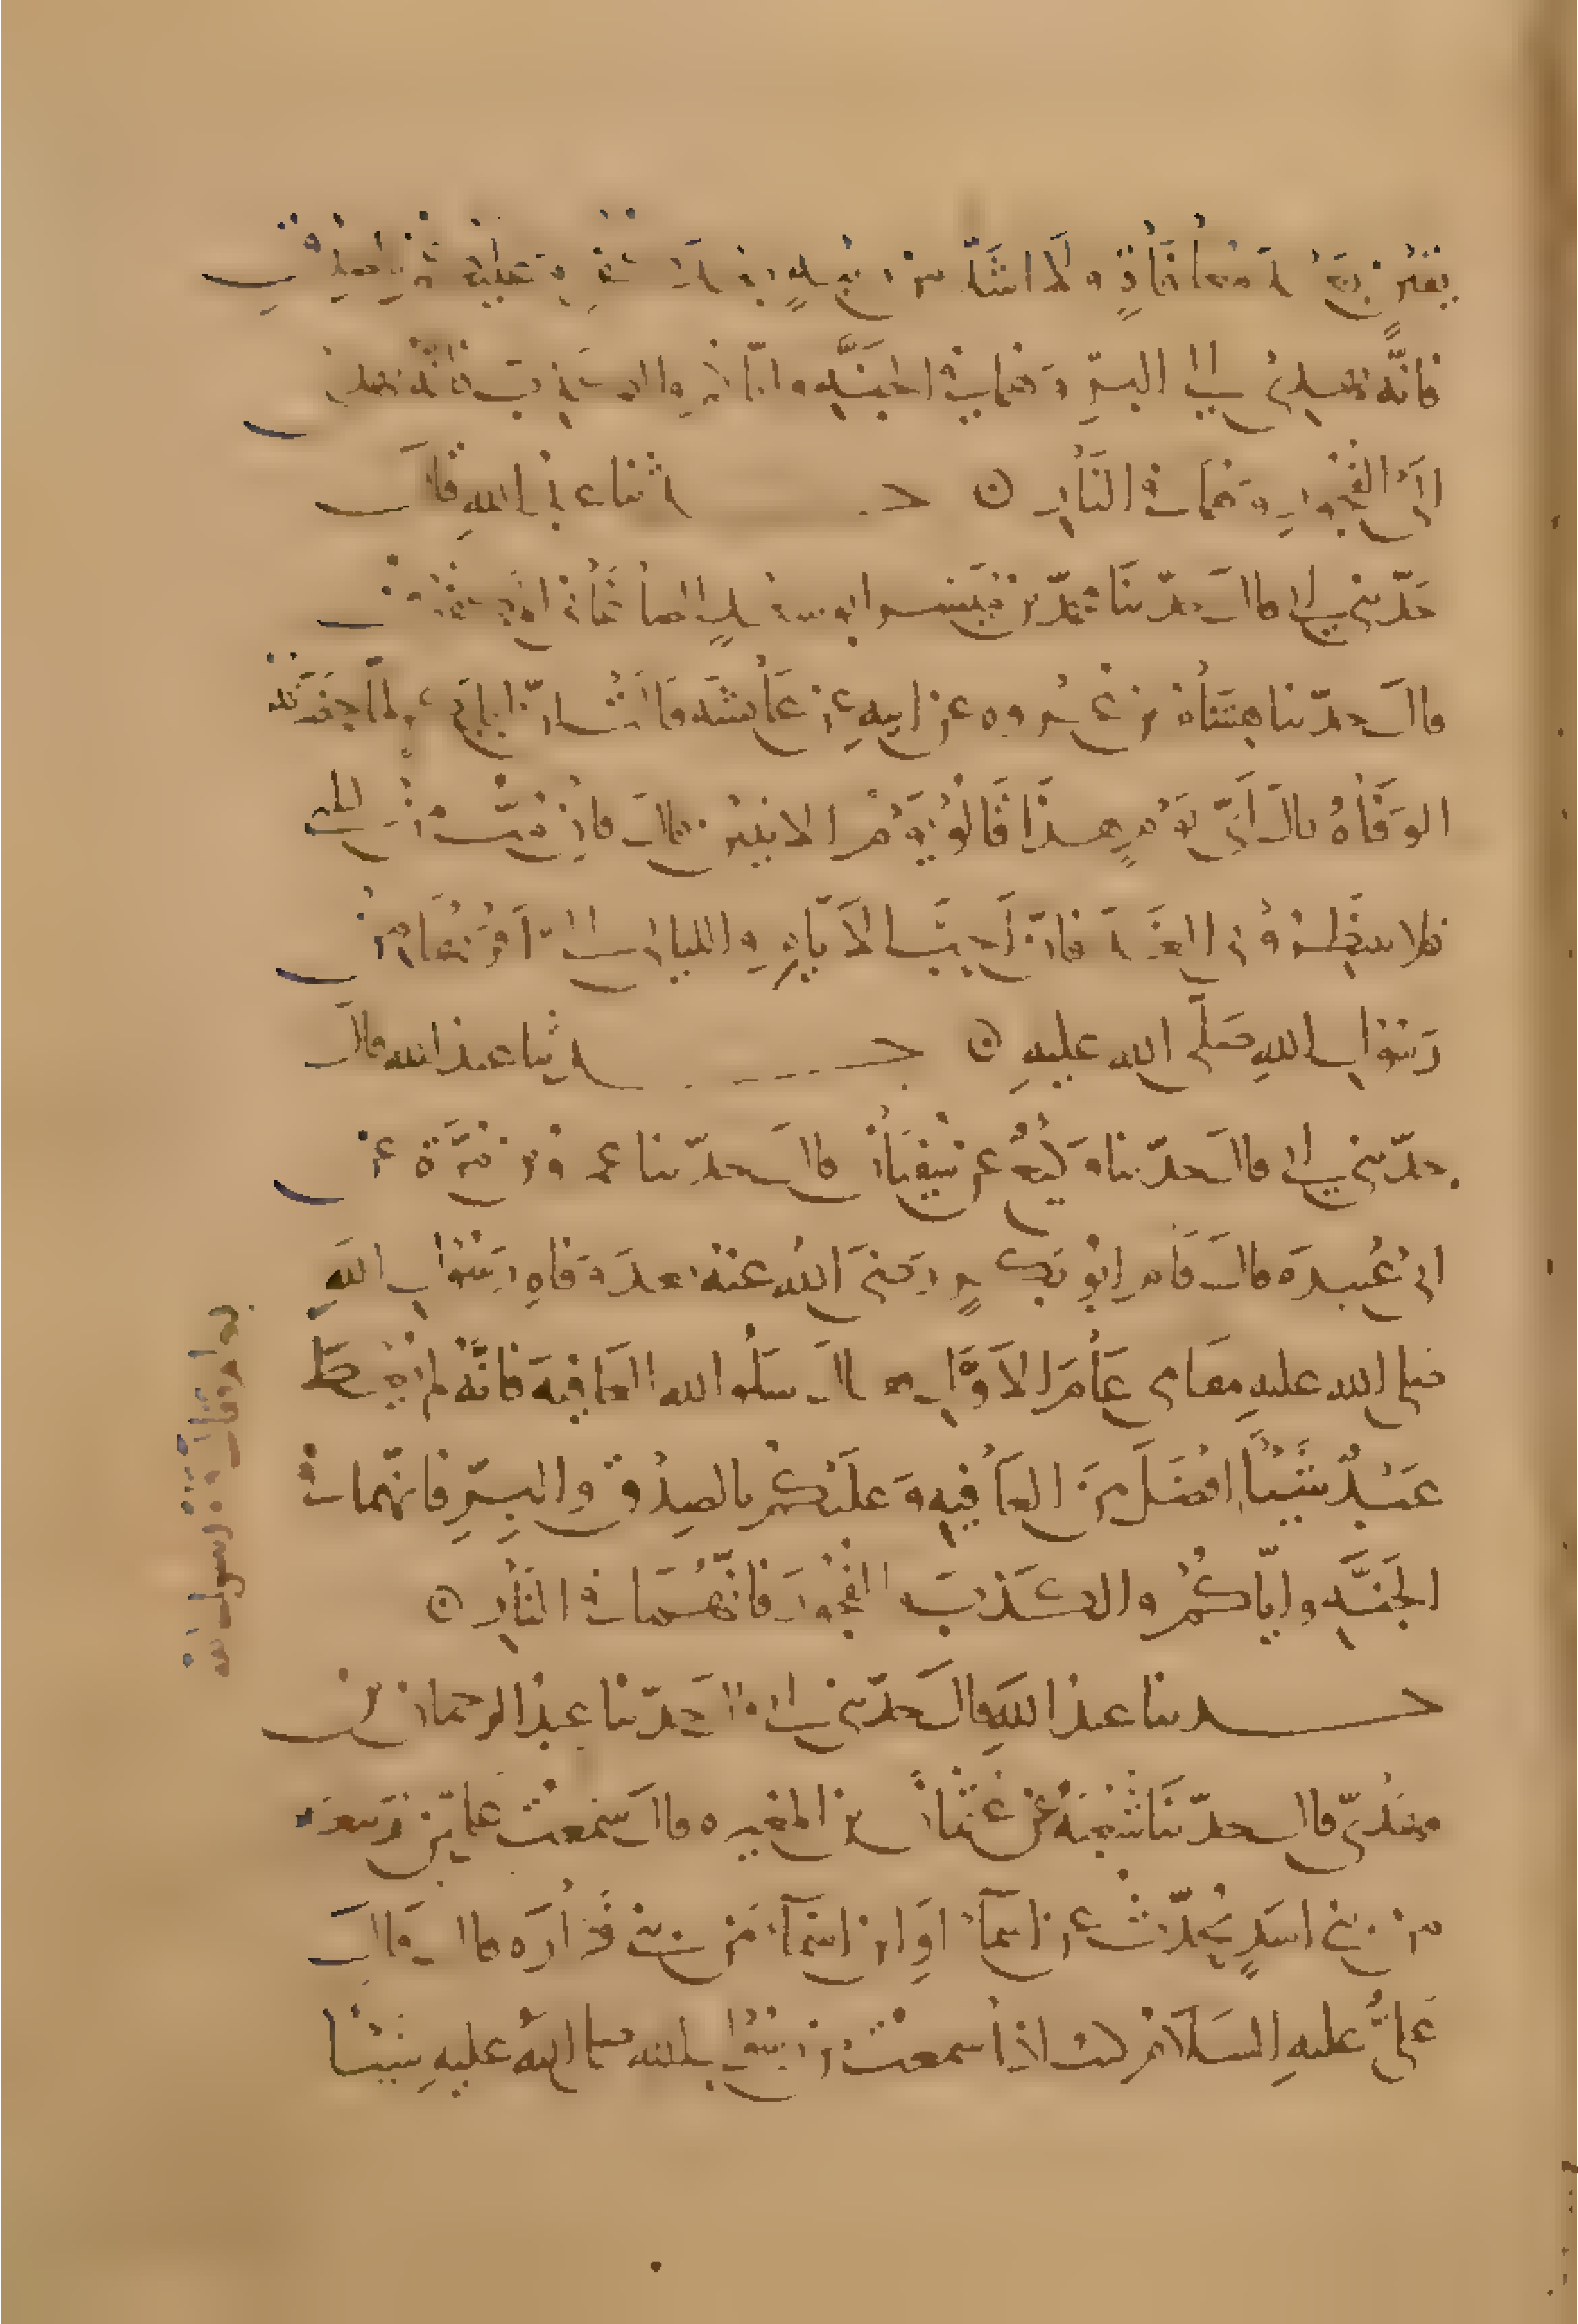 يقين بعد معافاة ولا اشد من ريبة بعد كفر وعليكم بالصدق
فانه يهدي الى البر وهما في الجنة واياكم والكذب فانه يهدي
الى الفجور وهما في النار ه حدثنا عبد الله قال
حدثني ابي قال حدثنا محمد بن ميسر ابو سعد الصاغاني المكفوف
قال حدثنا هشام بن عروه عن ابيه عن عائشه قالت ان ابا بكر لما حضرته
الوفاه قال اي يوم هذا قالوا يوم الاثنين قال فان مت من ليلتي
فلا تنتظروا بي الغد فان احب الايام والليالي الي اقربها من
رسول الله صلى الله عليه ه حدثنا عبد الله قال
حدثني ابي قال حدثنا وكيع عن سفيان قال حدثنا عمرو بن مرة عن
ابي عبيده قال قام ابو بكر رضي الله عنه بعد وفاه رسول الله
صلى الله عليه بعام فقال قام رسول الله
صلى الله عليه مقامي عام الاول فقال سلوا الله العافيه فانه لم يعط
عبد شيئا افضل من العافيه وعليكم بالصدق والبر فانهما في
الجنه واياكم والكذب والفجور فانهما في النار ه
حدثنا عبد الله قال حدثني ابي قال حدثنا عبد الرحمان بن
مهدي قال حدثنا شعبة عن عثمان بن المغيره قال سمعت علي بن ربيعه
من بني اسد يحدث عن اسماء او ابن اسماء من بني فزاره قال قال
علي عليه السلام كنت اذا سمعت من رسول الله صلى الله عليه شيئا